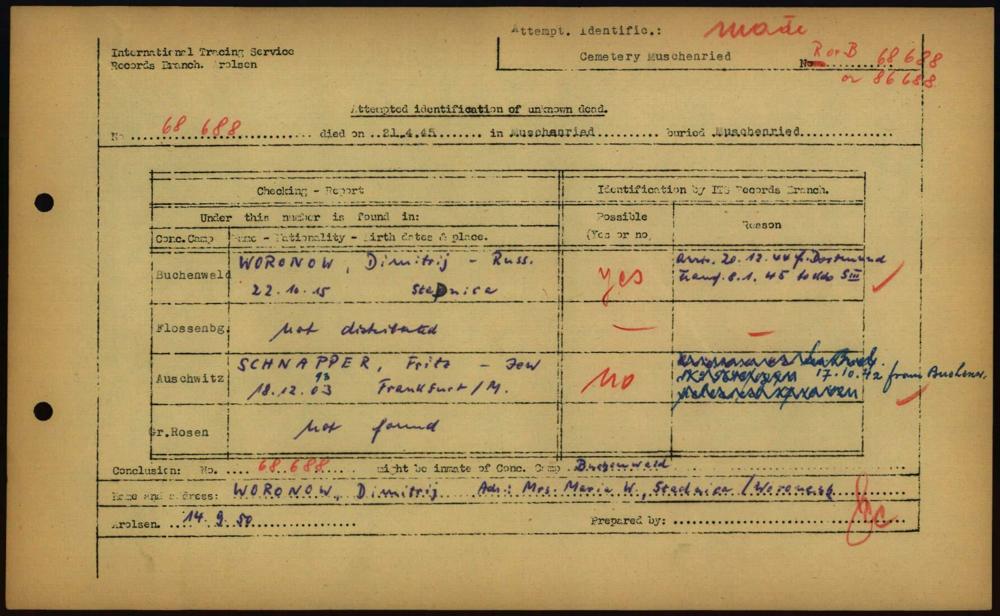 Attempt. Identific.: made
International Tracing Service
Records Branch. Arolsen
Cemetery Muschenried
No R or B 68688
or 86688
Attempted identification of unknown dead.
No 68 688 died on 21.4.45 in Muschenried buried Muschenried
Checking - Report
Identification by ITS Records Branch.
Under this number is found in:
Possible
(Yes or no)
Reason
Conc.Camp Name - Nationality - Birth dates & place.
Buchenwald
WORONOW, Dimitrij - Russ.
22.10.15 Stadnica
yes
arr. 20.12.44 f. Dortmund
Transf. 8.1.45 to kdo SIII
Flossenbg.
not distributed
—
—
Auschwitz
SCHNAPPER, Fritz - Jew
18.12.03 93 Frankfurt/M.
no
17.10.42 from Buchenw.
Gr.Rosen
not found
Conclusion: No. 68.688 might be inmate of Conc. Camp Buchenwald
Name and address: WORONOW, Dimitrij Adr.: Mrs. Maria W., Stadnica / Woronesh
Arolsen. 14.9.50 Prepared by: